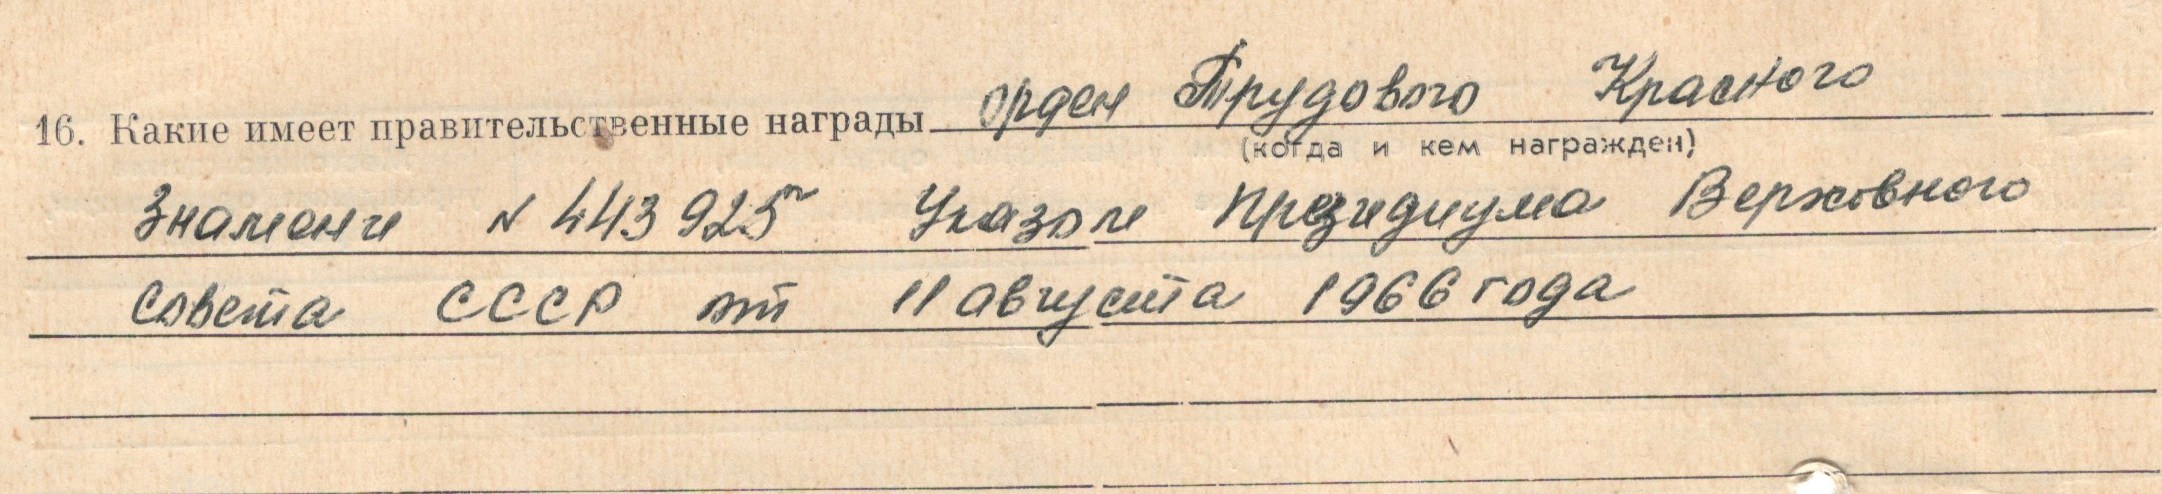 16. Какие имеет правительственные награды орден Трудового Красного
(когда и кем награжден)
Знамени N 443925 Указом Президиума Верховного
Совета СССР от 11 августа 1966 года